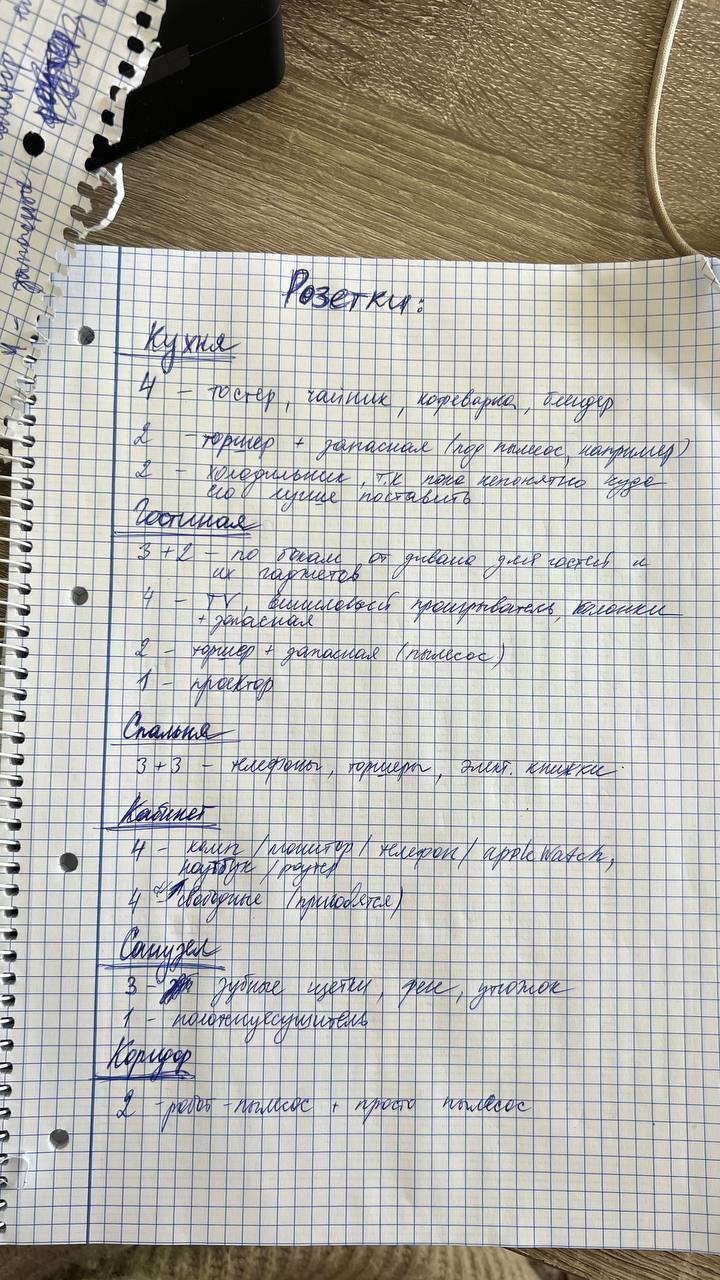 Розетки:
Кухня
4 - тостер, чайник, кофеварка, блендер
2 - торшер + запасная (под пылесос, например)
2 - холодильник, т.к пока непонятно куда
его лучше поставить
Гостиная
3 + 2 - по бокам от дивана для гостей и
их гаджетов
4 - TV, виниловый проигрыватель, колонки
+ запасная
2 - торшер + запасная (пылесос)
1 - проектор
Спальня
3 + 3 - телефоны, торшеры, элект. книжки
Кабинет
4 - комп / монитор / телефон / apple Watch,
ноутбук / роутер
4 свободные (пригодятся)
Санузел
3 - зубные щетки, фен, утюжок
1 - полотенцесушитель
Коридор
2 - робот-пылесос + просто пылесос
запасная